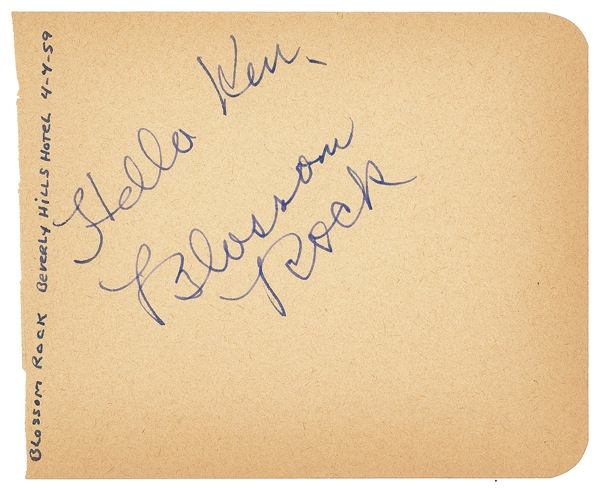 Hello Ken.
Blossom
Rock
BLOSSOM ROCK BEVERLY HILLS HOTEL 4-4-59